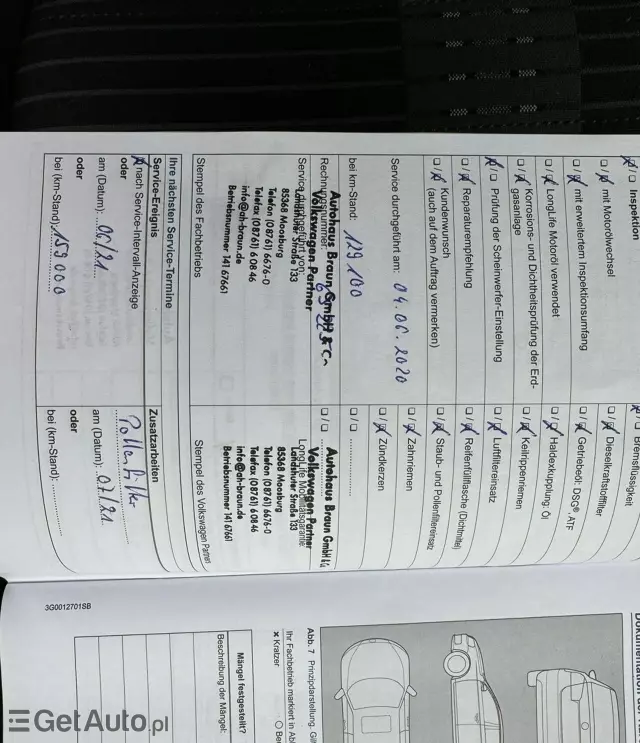 Inspektion
mit Motorölwechsel
mit erweitertem Inspektionsumfang
LongLife Motoröl verwendet
Korrosions- und Dichtheitsprüfung der Erd-
gasanlage
Prüfung der Scheinwerfer-Einstellung
Reparaturempfehlung
Kundenwunsch
(auch auf dem Auftrag vermerken)
Service durchgeführt am: 04.06.2020
bei km-Stand: 129 100
Rechnungsnummer
Service durchgeführt von:
Autohaus Braun GmbH & C
Volkswagen Partner
Landshuter Straße 133
85368 Moosburg
Telefon (0 87 61) 66 76-0
Telefax (0 87 61) 6 08 46
info@ah-braun.de
Betriebsnummer 141 67661
Stempel des Fachbetriebs
Bremsflüssigkeit
Dieselkraftstofffilter
Getriebeöl: DSG®, ATF
Haldexkupplung: Öl
Keilrippenriemen
Luftfiltereinsatz
Reifenfüllflasche (Dichtmittel)
Staub- und Pollenfiltereinsatz
Zahnriemen
Zündkerzen
LongLife Mobilitätsgarantie
Autohaus Braun GmbH &
Volkswagen Partner
Landshuter Straße 133
85368 Moosburg
Telefon (0 87 61) 66 76-0
Telefax (0 87 61) 6 08 46
info@ah-braun.de
Betriebsnummer 141 67661
Stempel des Volkswagen Partners
Ihre nächsten Service-Termine
Service-Ereignis
nach Service-Intervall-Anzeige
oder
am (Datum): 06/21
oder
bei (km-Stand): 159 000
Zusatzarbeiten
Pollenfilter
am (Datum): 07/21
oder
bei (km-Stand):
3G0012701SB
Abb. 7 Prinzipdarstellung.
Ihr Fachbetrieb markiert in
Kratzer
Mängel festgestellt?
Beschreibung der Mängel:
GetAuto.pl